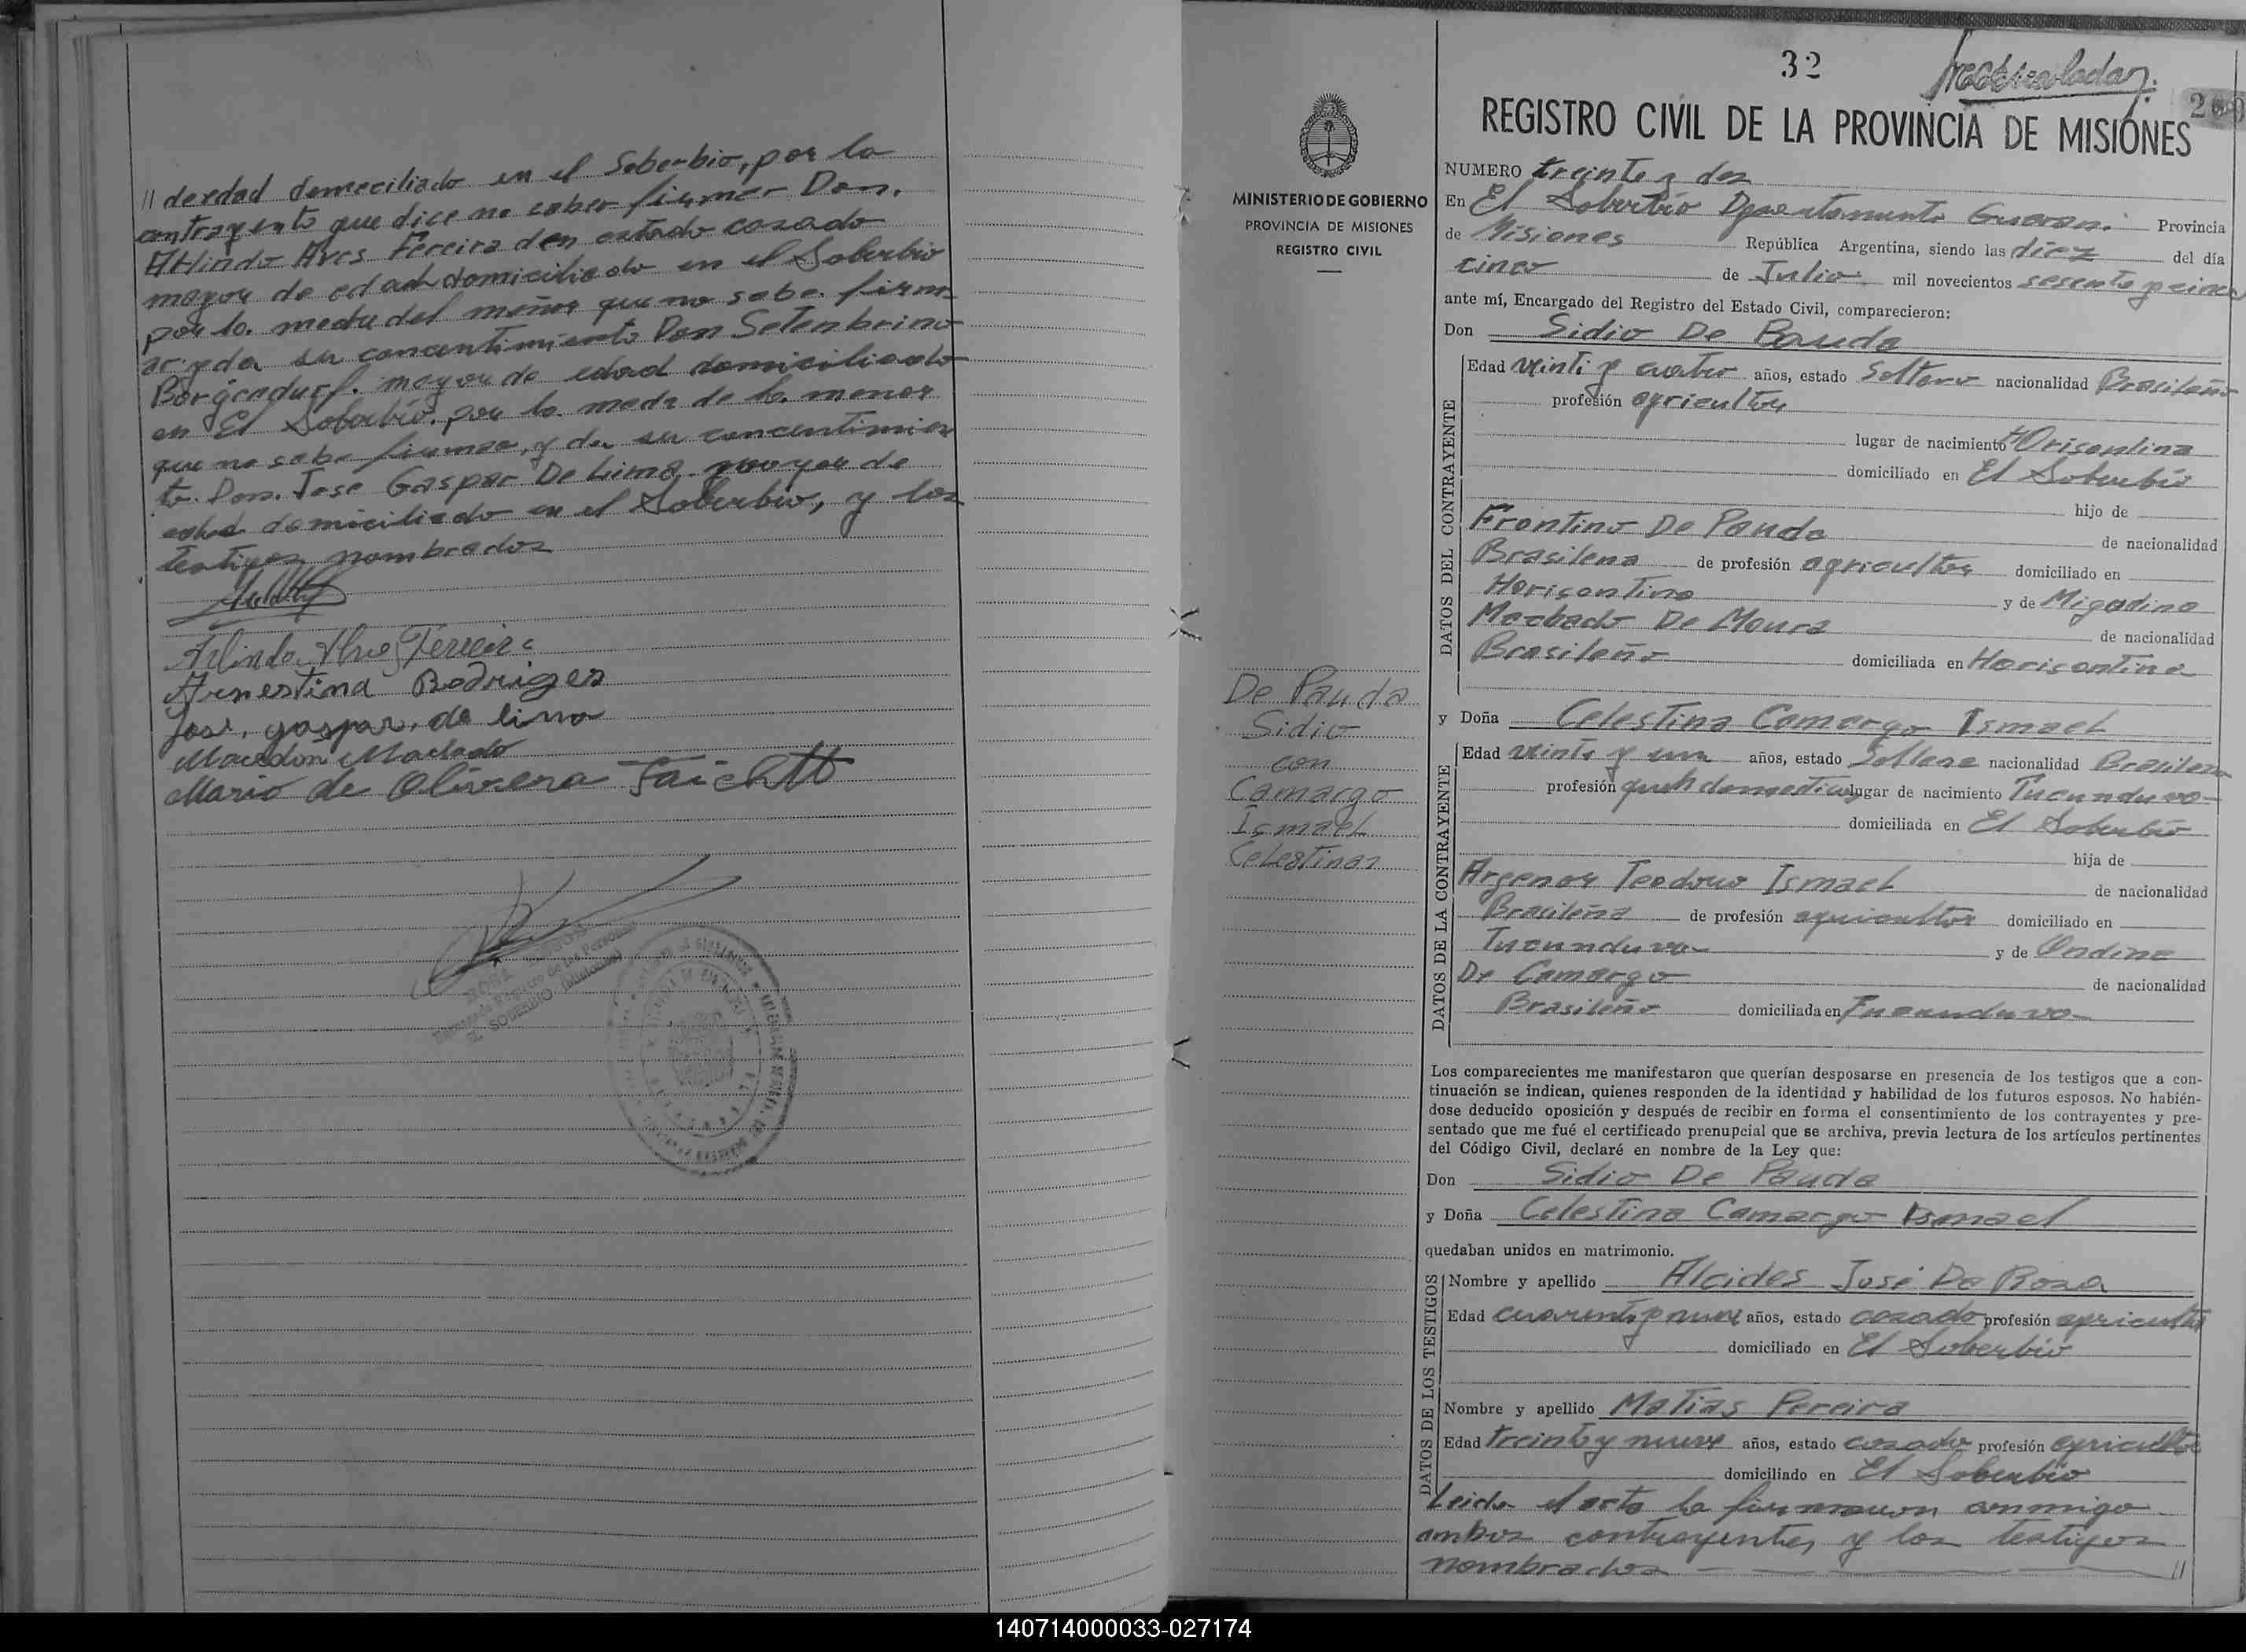 // de edad domiciliado en el Soberbio, por la
contrayente que dice no saber firmar Don.
Arlindo Aves Fereira den estado casado
mayor de edad domiciliado en el Soberbio
por la. madre del menor que no sabe. firm
ar y da su concentimiento Don Setenbrino
mayor de edad domiciliado
en El Soberbio. por la madre de la. menor
que no sabe firmar, y da su concentimien
to. Don. Jose Gaspar De Lima mayor de
edad domiciliado en el Soberbio, y los
testigos nombrados
Arlindo Alves Ferreira
Arnestina Rodrigez
José, gaspar, de lima
Macedon Machado
Mario de Olivera
SOBERBIO (Misiones)
32
REGISTRO CIVIL DE LA PROVINCIA DE MISIONES
MINISTERIO DE GOBIERNO
PROVINCIA DE MISIONES
REGISTRO CIVIL
NUMERO treinta y dos
En El Soberbio Departamento Guarani Provincia
de Misiones República Argentina, siendo las diez del día
cinco de Julio mil novecientos sesenta y cinco
ante mí, Encargado del Registro del Estado Civil, comparecieron:
Don Sidio De Pauda
DATOS DEL CONTRAYENTE
Edad veinti y cuatro años, estado Soltero nacionalidad Brasileño
profesión agricultor
lugar de nacimiento Orisontina
domiciliado en El Soberbio
hijo de
Frontino De Pauda de nacionalidad
Brasilena de profesión agricultor domiciliado en
Horisontina y de Migadina
Machado De Moura de nacionalidad
Brasileño domiciliada en Horisontina
De Pauda
Sidio
con
Camargo
Ismael
Celestina
y Doña Celestina Camargo Ismael
DATOS DE LA CONTRAYENTE
Edad veinte y una años, estado Soltera nacionalidad Brasilera
profesión queh domesticos lugar de nacimiento Tucunduva
domiciliada en El Soberbio
hija de
Argenor Teodoro Ismael de nacionalidad
Brasileña de profesión agricultor domiciliado en
Tucunduva y de Ondina
De Camargo de nacionalidad
Brasileño domiciliada en Tucunduva
Los comparecientes me manifestaron que querían desposarse en presencia de los testigos que a con-
tinuación se indican, quienes responden de la identidad y habilidad de los futuros esposos. No habién-
dose deducido oposición y después de recibir en forma el consentimiento de los contrayentes y pre-
sentado que me fué el certificado prenupcial que se archiva, previa lectura de los artículos pertinentes
del Código Civil, declaré en nombre de la Ley que:
Don Sidio De Pauda
y Doña Celestina Camargo Ismael
quedaban unidos en matrimonio.
DATOS DE LOS TESTIGOS
Nombre y apellido Alcides José Da Roza
Edad cuarenta y nueve años, estado casado profesión agricultor
domiciliado en El Soberbio
Nombre y apellido Matias Pereira
Edad treinta y nueve años, estado casado profesión agricultor
domiciliado en El Soberbio
Leida el acta la firmaron conmigo
ambos contrayentes y los testigos
nombrados //
140714000033-027174